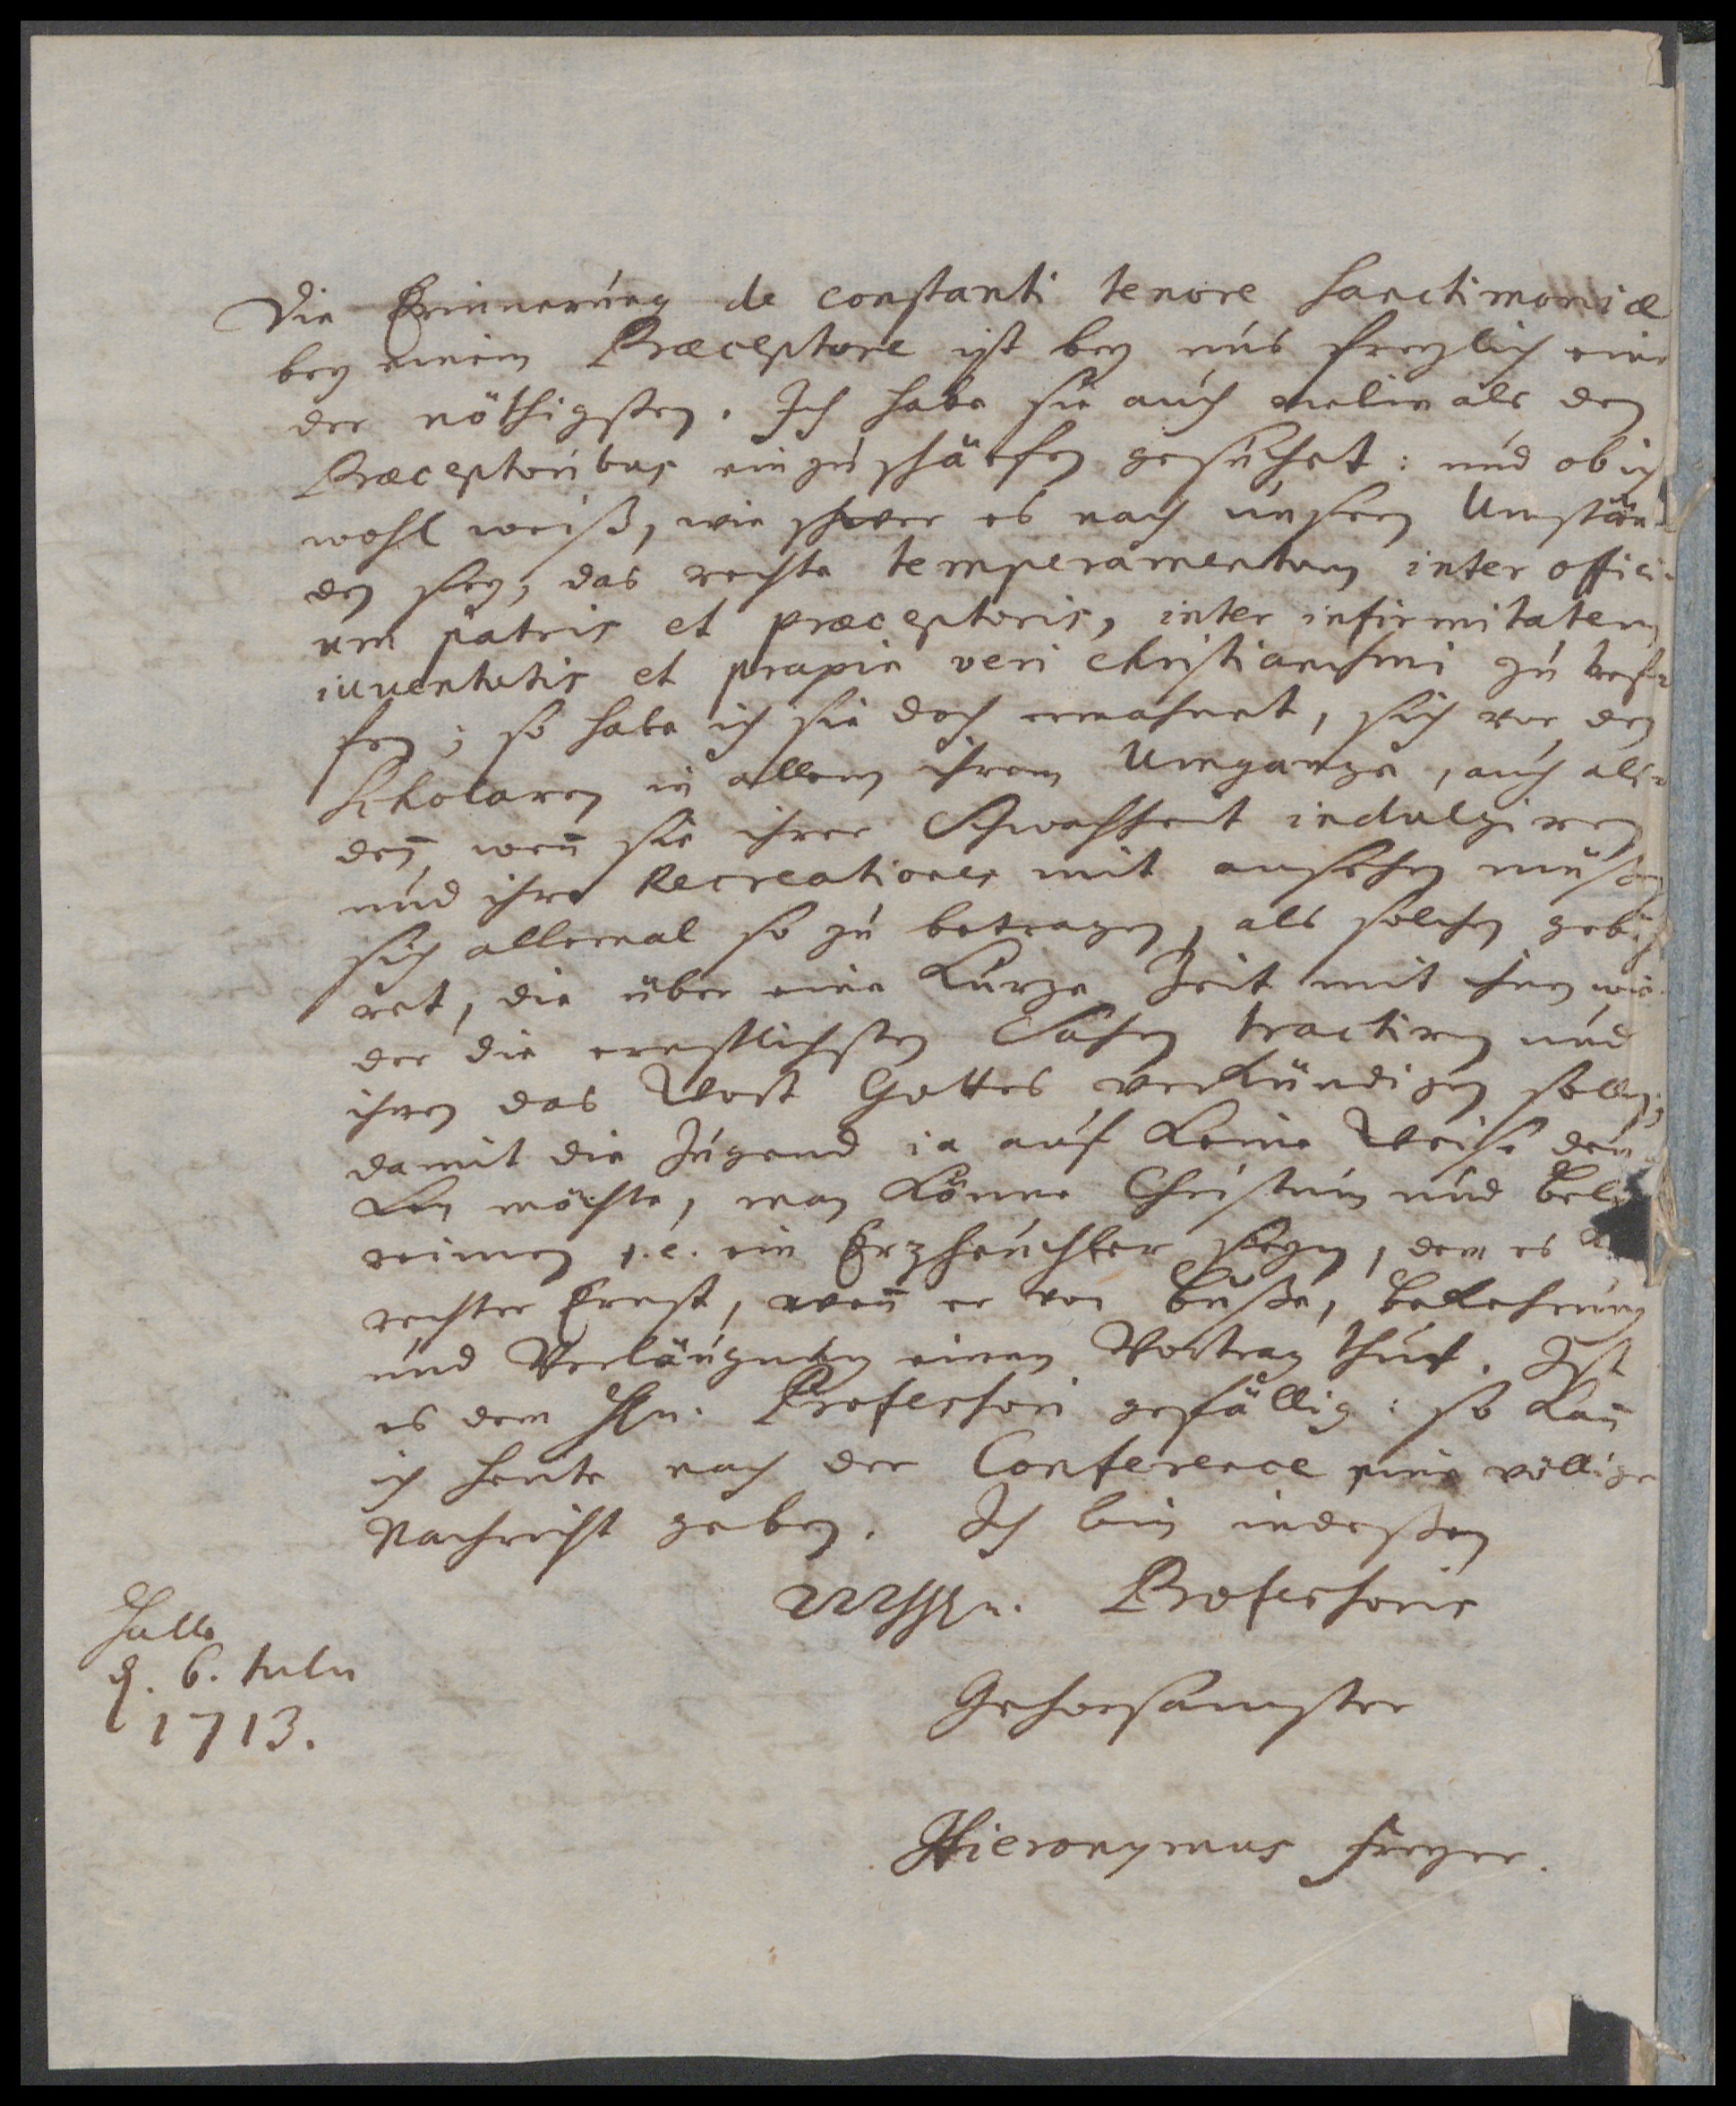 Die Erinnerung de constanti tenore sanctimoniæ
bey einem Præceptore ist bey uns freylich eine
der nöthigsten. Ich habe sie auch vielmals den
Præceptoribus einzuschärfen gesuchet: und ob ich
wohl weiß, wie schwer es nach unsern Umstän-
den sey, das rechte temperamentum inter offici-
um patris et præceptoris, inter infirmitatem
iuuentutis et praxin veri christianismi zu tref-
fen; so habe ich sie doch ermahnet, sich vor den
Scholaren in allem ihrem Umgange, auch als-
den, wen sie ihrer Schwachheit indulgiren
und ihre Recreationes mit ansehen müßen
sich allemal so zu betragen, als solchen gebüh
ret, die über eine kurze Zeit mit ihnen wie-
der die ernstlichsten Sachen tractiren und
ihnen das Wort Gottes verkündigen sollen;
damit die Jugend ia auf keine Weise den-
ken möchte, man könne Christum und Beli
reimen i.e. ein Erzheuchler seyn, dem es
rechter Ernst, wen er von Buße, Bekehrung
und Verläugnung einen Vortrag thut. Ist
es dem Hn. Professori gefällig: so kan
ich heute nach der Conference eine völlige
Nachricht geben. Ich bin indeßen
Professoris
Gehorsamster
Halle
d. 6. Iulii
1713.
Hieronymus Freyer.